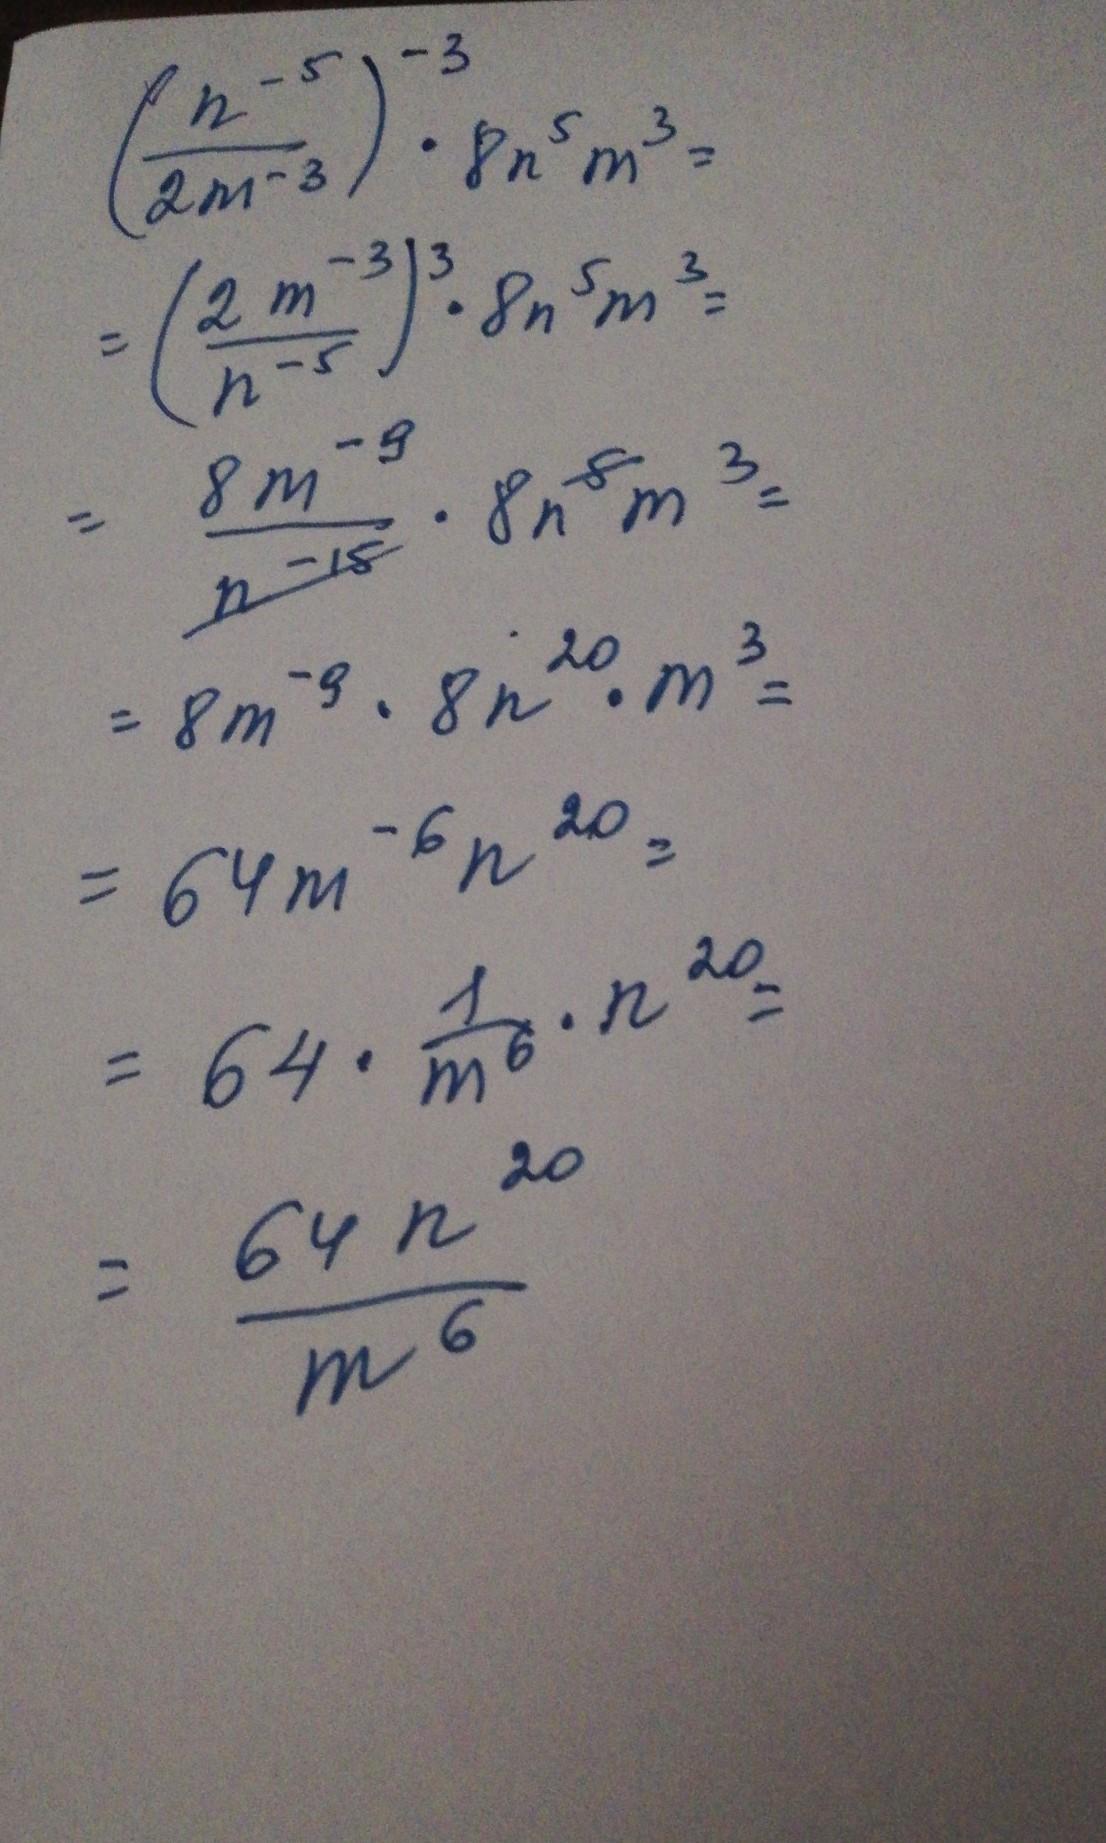 (n⁻⁵/2m⁻³)⁻³ · 8n⁵m³ =
= (2m⁻³/n⁻⁵)³ · 8n⁵m³ =
= 8m⁻⁹/n⁻¹⁵ · 8n⁵m³ =
= 8m⁻⁹ · 8n²⁰ · m³ =
= 64m⁻⁶n²⁰ =
= 64 · 1/m⁶ · n²⁰ =
= 64n²⁰/m⁶